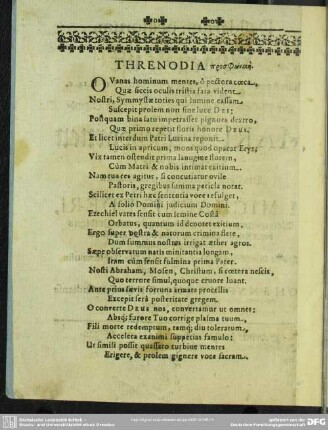 THRENODIA προσφωνική.
O Vanas hominum mentes, ô pectora cœca,
Quæ siccis oculis tristia fata vident
Nostri, Symmystæ toties qui lumine cassam
Suscipit prolem non sine luce DEI;
Postquam bina sato impetrasset pignora dextro,
Quæ primo repetit floris honore DEUS.
Et licet interdum Patri Lucina reponit
Lucis in apricum, mons quod opacat Eryx;
Vix tamen ostendit prima lanugine florem,
Cùm Matri & nobis intimat exitium.
Nam tua res agitur, si concutiatur ovile
Pastoris, gregibus summa pericla notat.
Scilicet ex Petri hæc sententia voce resulget,
A solio Domini judicium Domini.
Ezechiel vates sensit cum semine Costâ
Orbatus, quantum id dcōnoret exitium,
Ergo super vestra & natorum crimina flete,
Dum summus nostras irrigat æther agros.
Sæpe observatum natis minitantia longam,
Iram cùm sensit fulmina prima Pater.
Nosti Abraham, Mosen, Christum, si cœtera nescis,
Quo terrore simul, quoque cruore luant.
Ante prius sævis fortuna armata procellis
Excepit serâ posteritate gregem.
O converte DEUS nos, convertamur ut omnes:
Absq; furore Tuo corrige plasma tuum,
Fili morte redemptum, tamq; diu toleratum,
Accelera exanimi suppetias famulo:
Ut simili possit quassato turbine mentes
Erigere, & prolem gignere voce sacram.